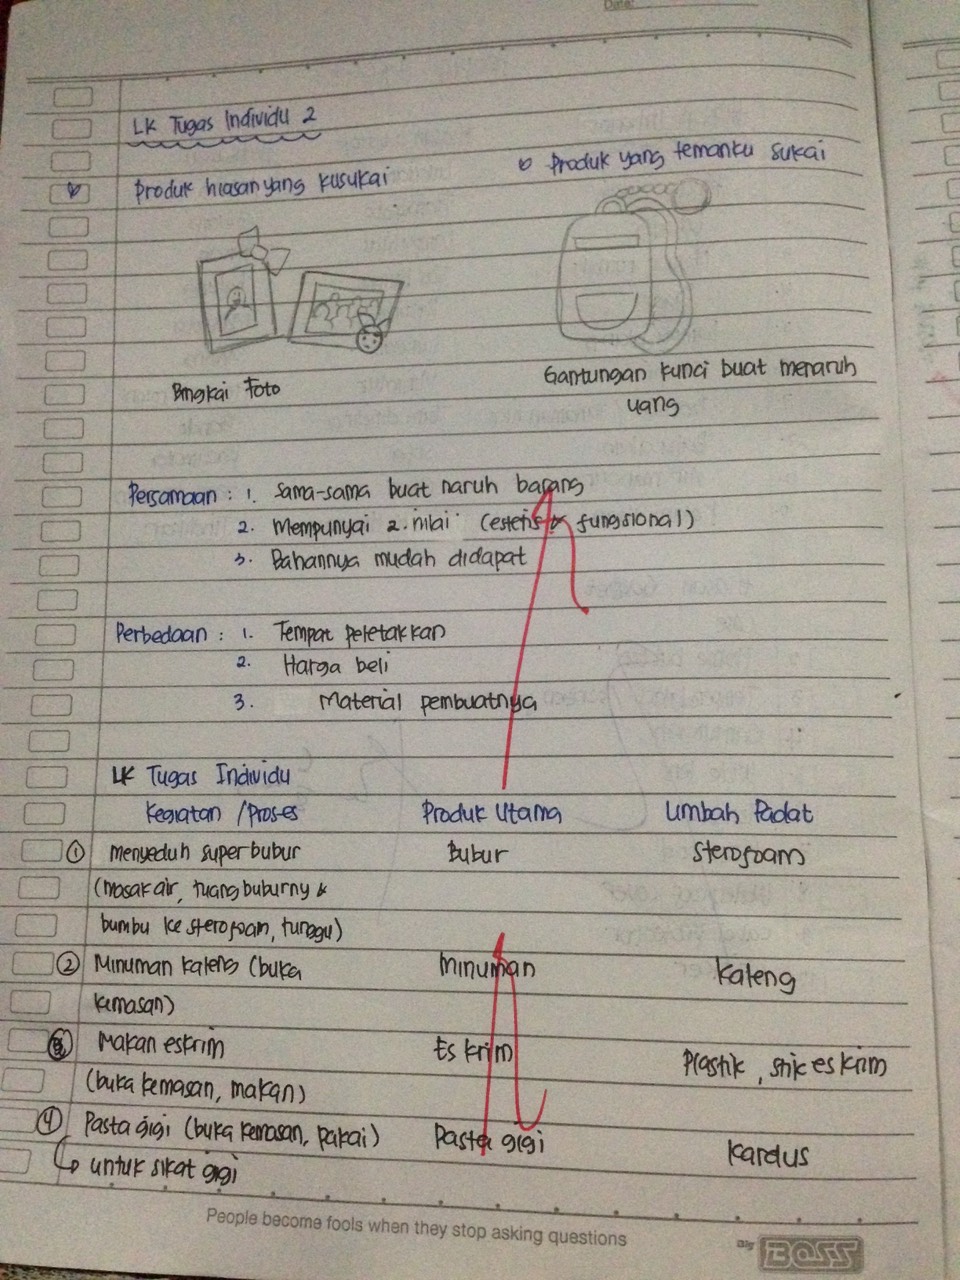 Date:
LK Tugas Individu 2
Produk hiasan yang kusukai
Produk yang temanku sukai
Bingkai Foto
Gantungan kunci buat menaruh
uang
Persamaan : 1. Sama-sama buat naruh barang
2. Mempunyai 2 nilai (estetis & fungsional)
3. Bahannya mudah didapat
Perbedaan : 1. Tempat peletakkan
2. Harga beli
3. Material pembuatnya
LK Tugas Individu
Kegiatan / Proses Produk Utama Limbah Padat
① menyeduh super bubur Bubur Sterofoam
(masak air, tuang buburny &
bumbu ke sterofoam, tunggu)
② Minuman kaleng (buka Minuman Kaleng
kemasan)
③ Makan eskrim Es krim Plastik, stik es krim
(buka kemasan, makan)
④ Pasta gigi (buka kemasan, pakai) Pasta gigi Kardus
↳ untuk sikat gigi
People become fools when they stop asking questions
Big BOSS